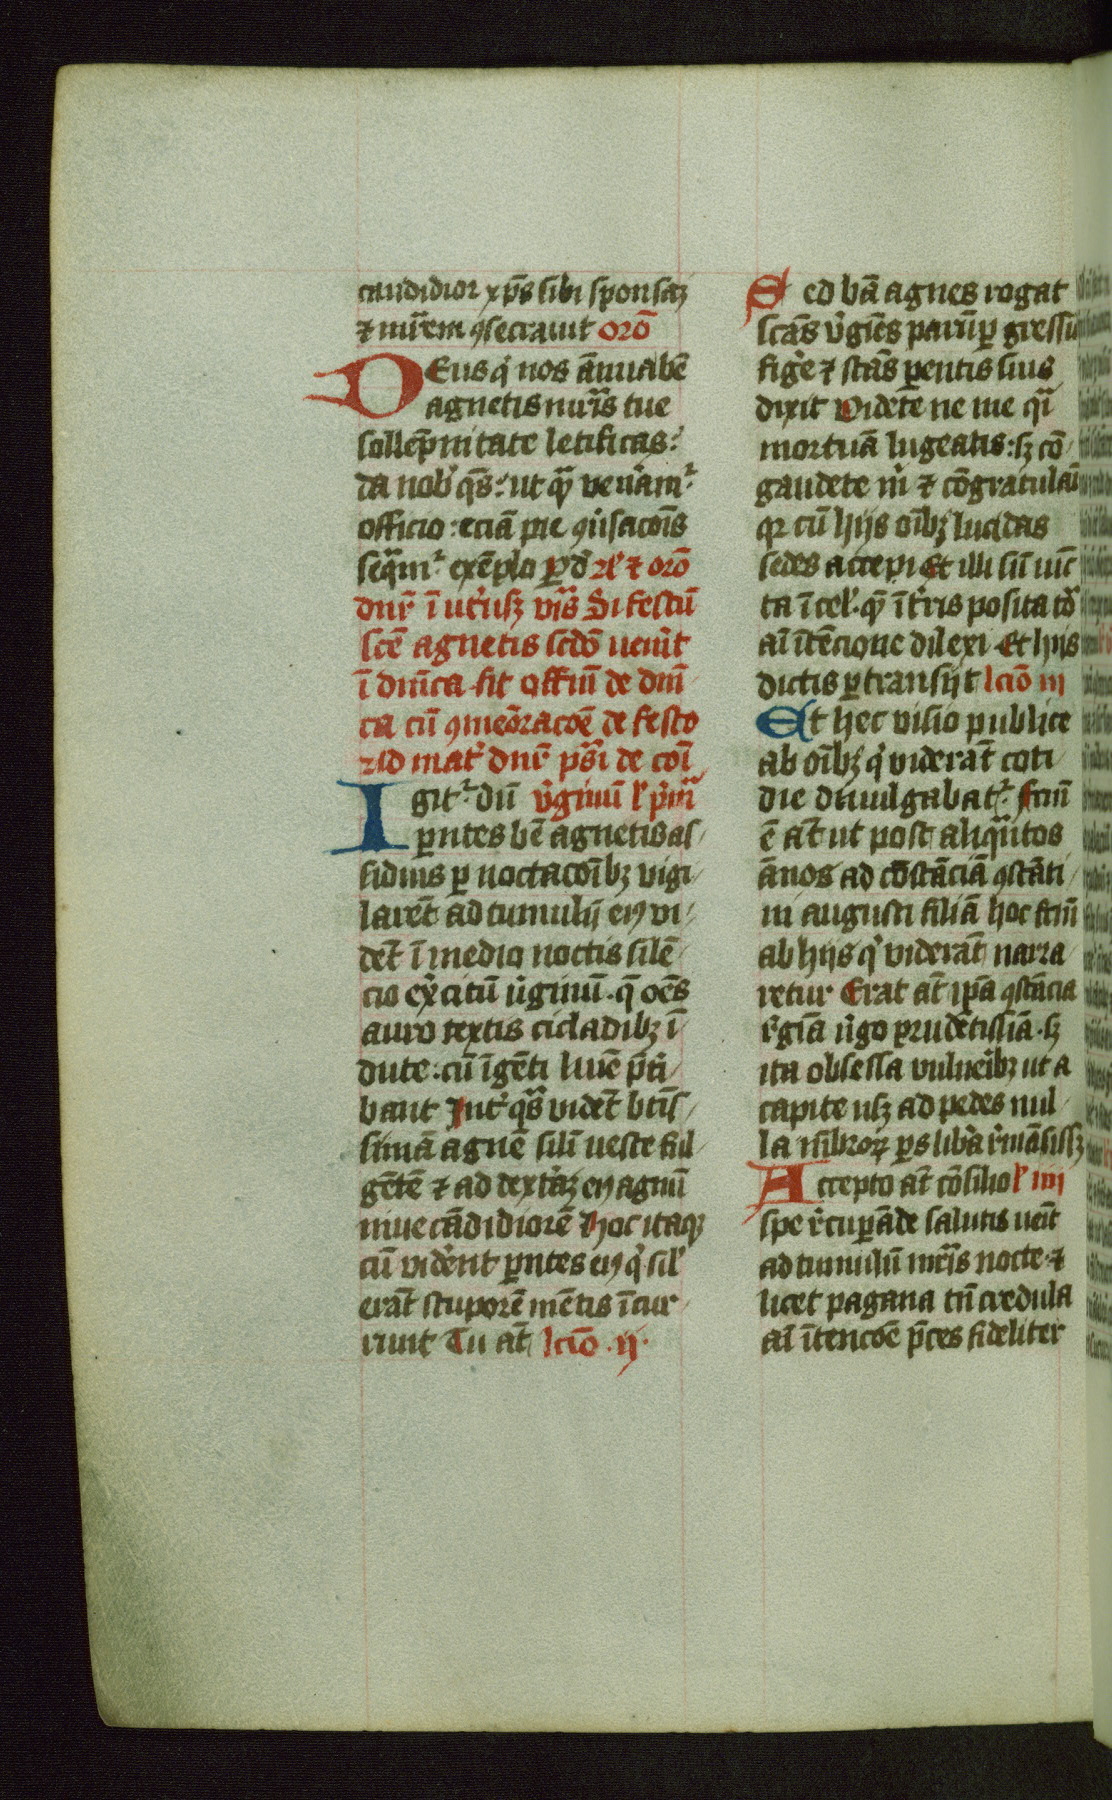 candidior xp̄s sibi sponsaꝫ
⁊ mr̄em ꝯsecrauit orō
Deus qͥ nos ānua bē
agnetis mr̄is tue
sollēpnitate letificas:
da nobͭ qs̄: ut qͣ veneamr᷑
officio: eciā pie ꝯuͥsacōis
seqͣmr᷑ exēplo ꝑ d̄ Rͦ ⁊ orō
dn̄r ī utͥusꝫ vīs Si festū
scē agnetis scdō uenͥt
ī dn̄ica fit offīū de dn̄i
ca cū ꝯmeōracōe de festo
ad mat᷑ dn̄r ps̄i de cōi
Igit᷑ dū vͥginū l pͥmͣ
ꝑntes bē agnetis as
siduis ꝑ noctacōibꝫ vigi
larēt ad tumulū eiꝰ vi
dēt ī medio noctis silē
cio exͥcitū uͥginū q̄ oēs
auro textis cicladibꝫ ī
dute: cū īgēti lumē p̄ti
bant Int᷑ qͣs vidēt btīs
simā agnē sili ueste ful
gētē ⁊ ad dextāꝫ eiꝰ agnū
niue cādidiorē Hoc itaqꝫ
cū vidērit ꝑntes eiꝰ ⁊ qͥ sil᷑
erāt stuporē mētis īcur
rūt Tu āt lc̄io ij
Sed bā agnes rogat
scās uͥgīes parūꝑ gressū
figē ⁊ stās ꝑentis suis
dixit Videte ne me qͣi
mortuā lugeatis: sꝫ cō
gaudete mͥ ⁊ cōgratulāi
qꝛ cū hijs oībꝫ lucidas
sedes accepi Et illi sū uic
ta ī cel᷑ qͣ ī t᷑ris posita tͦ
aī ītēcione dilexi Et hijs
dictis ꝑtransijt lc̄io iij
Et hec visio publice
ab oībꝫ qͥ viderāt coti
die diuulgabat᷑ fcm̄
ē āt ut post aliqͣntos
ānos ad cōstāciā ꝯstāti
ni augusti filiā hoc fcm̄
ab hijs qͥ viderāt narra
retur Erat āt ip̄a ꝯstācia
rͤgīa uͥgo prudētissīa sꝫ
ita obsessa vulneribꝫ ut a
capite usꝫ ad pedes nul
la mēbroꝝ ps̄ libͣa rͤmāsissꝫ
Accepto āt cōsilio l iiij
spe rͤcuꝑāde salutis uēit
ad tumulū mr̄is nocte ⁊
licet pagana tn̄ credula
aī ītencōe p̄ces fideliter